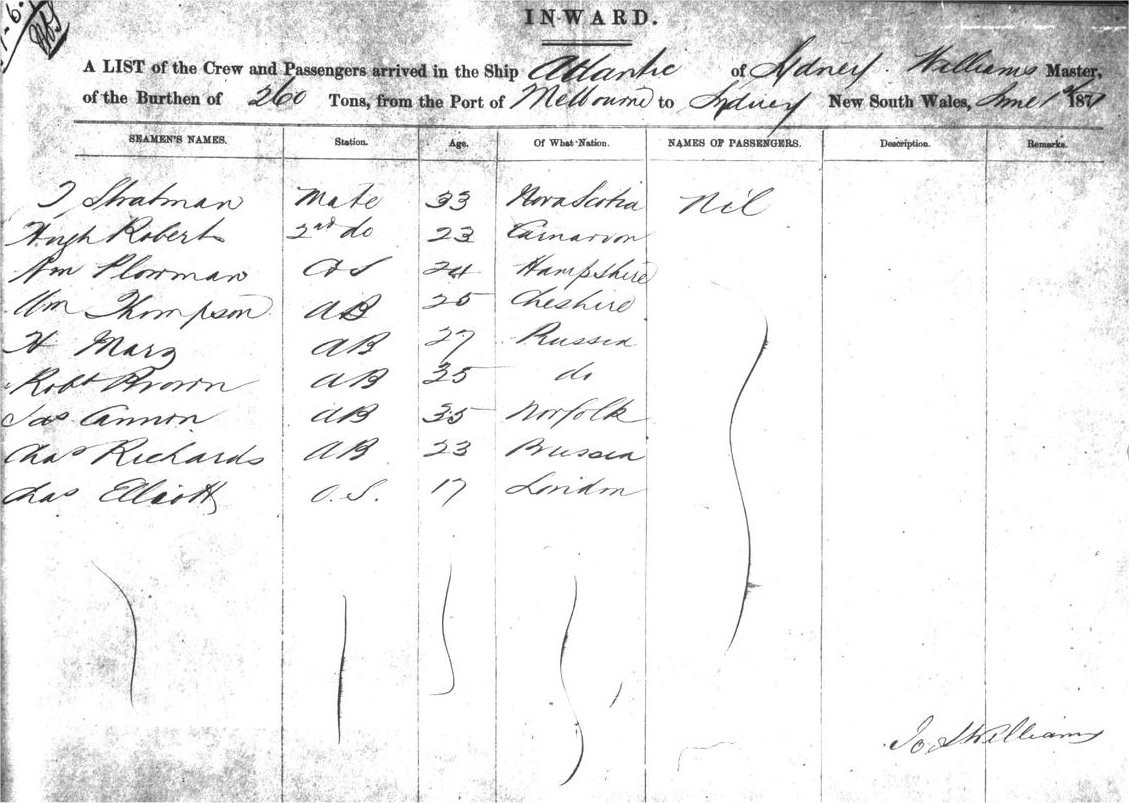 INWARD.
A LIST of the Crew and Passengers arrived in the Ship Atlantic of Sydney. Williams Master,
of the Burthen of 260 Tons, from the Port of Melbourne to Sydney New South Wales, June 1st 1871
SEAMEN'S NAMES. Station. Age. Of What Nation. NAMES OF PASSENGERS. Description. Remarks.
Stratman Mate 33 Nova Scotia Nil
Hugh Roberts 2nd do 23 Carnarvon
Wm Plowman 24 Hampshire
Wm Thompson AB 25 Cheshire
H Marz AB 27 Russia
Robt Brown AB 25 do
Jas Cannon AB 35 Norfolk
Chas Richards AB 23 Prussia
Chas Elliott O.S. 17 London
Jos Williams